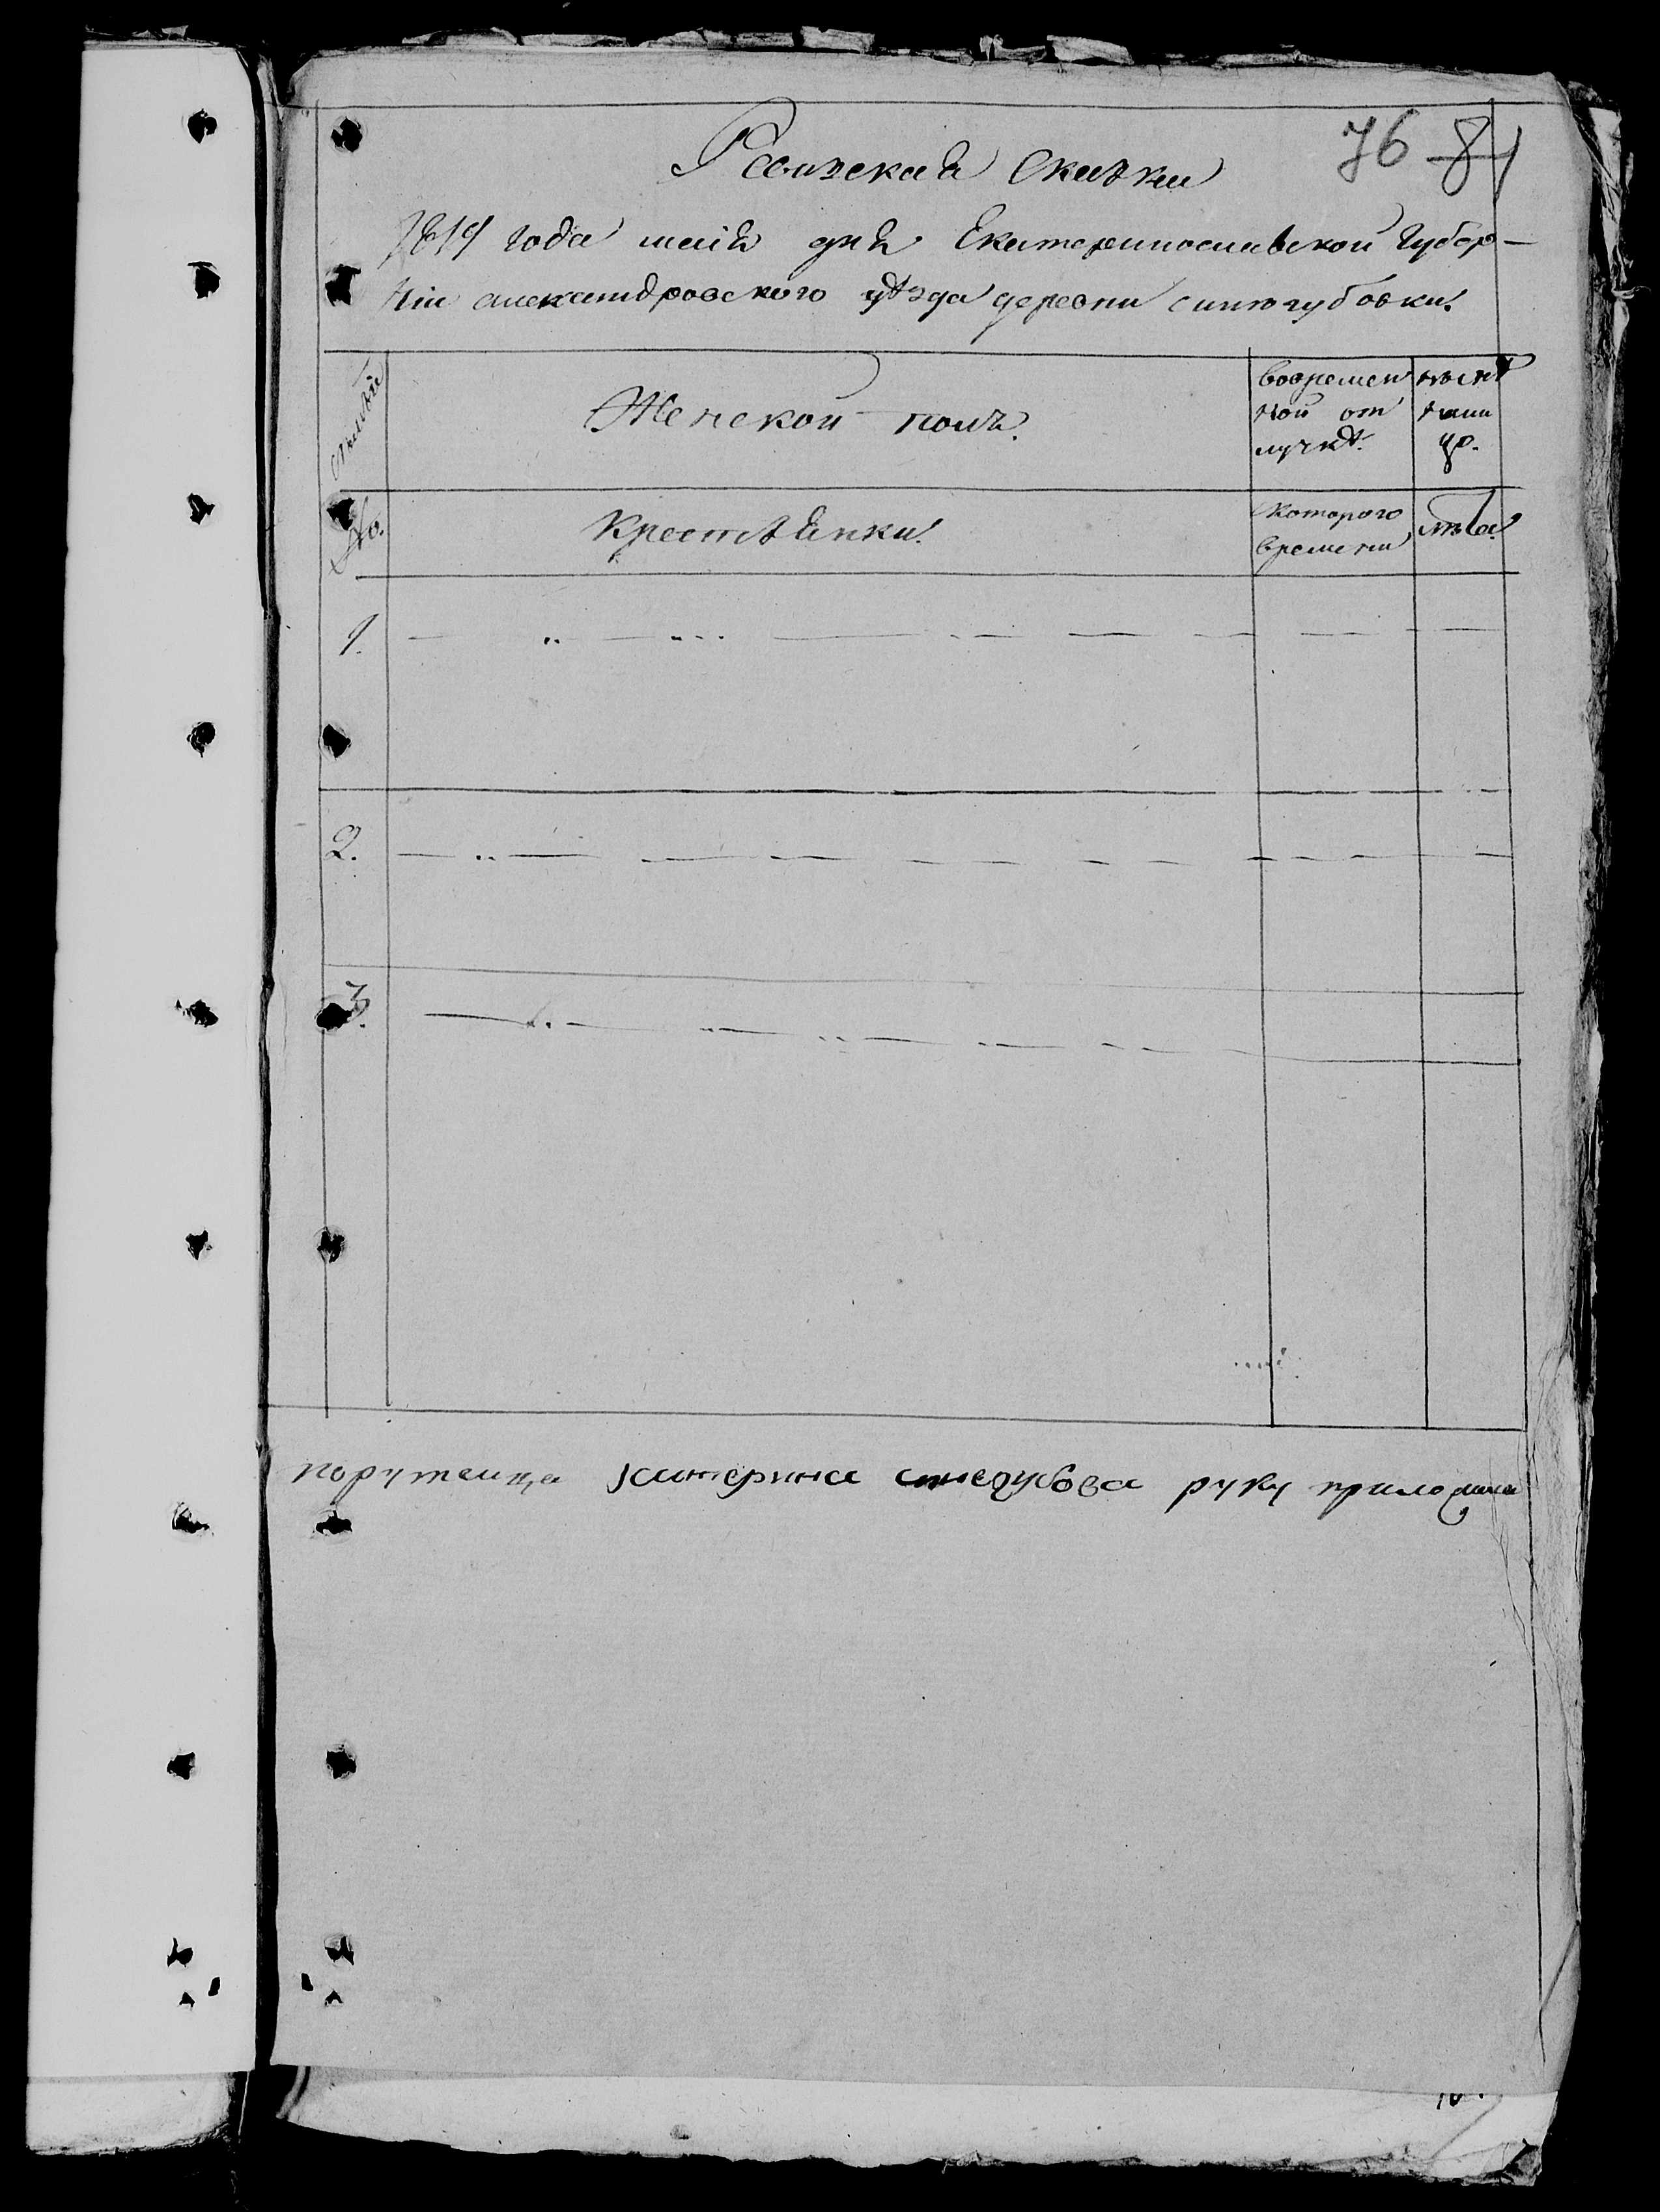 76 84
Ревизская Сказка
года маія дня Екатеринославской Губер–
ніи александровского уѣзда деревни синегубовки.
семьи
№.
Женской полъ.
вовремен
ной от
лучкѣ.
нынѣ
нали
цо.
Крестьянки.
Которого
времени
лѣта.
1.
2.
3.
порутчица катерина синегубова руку приложила